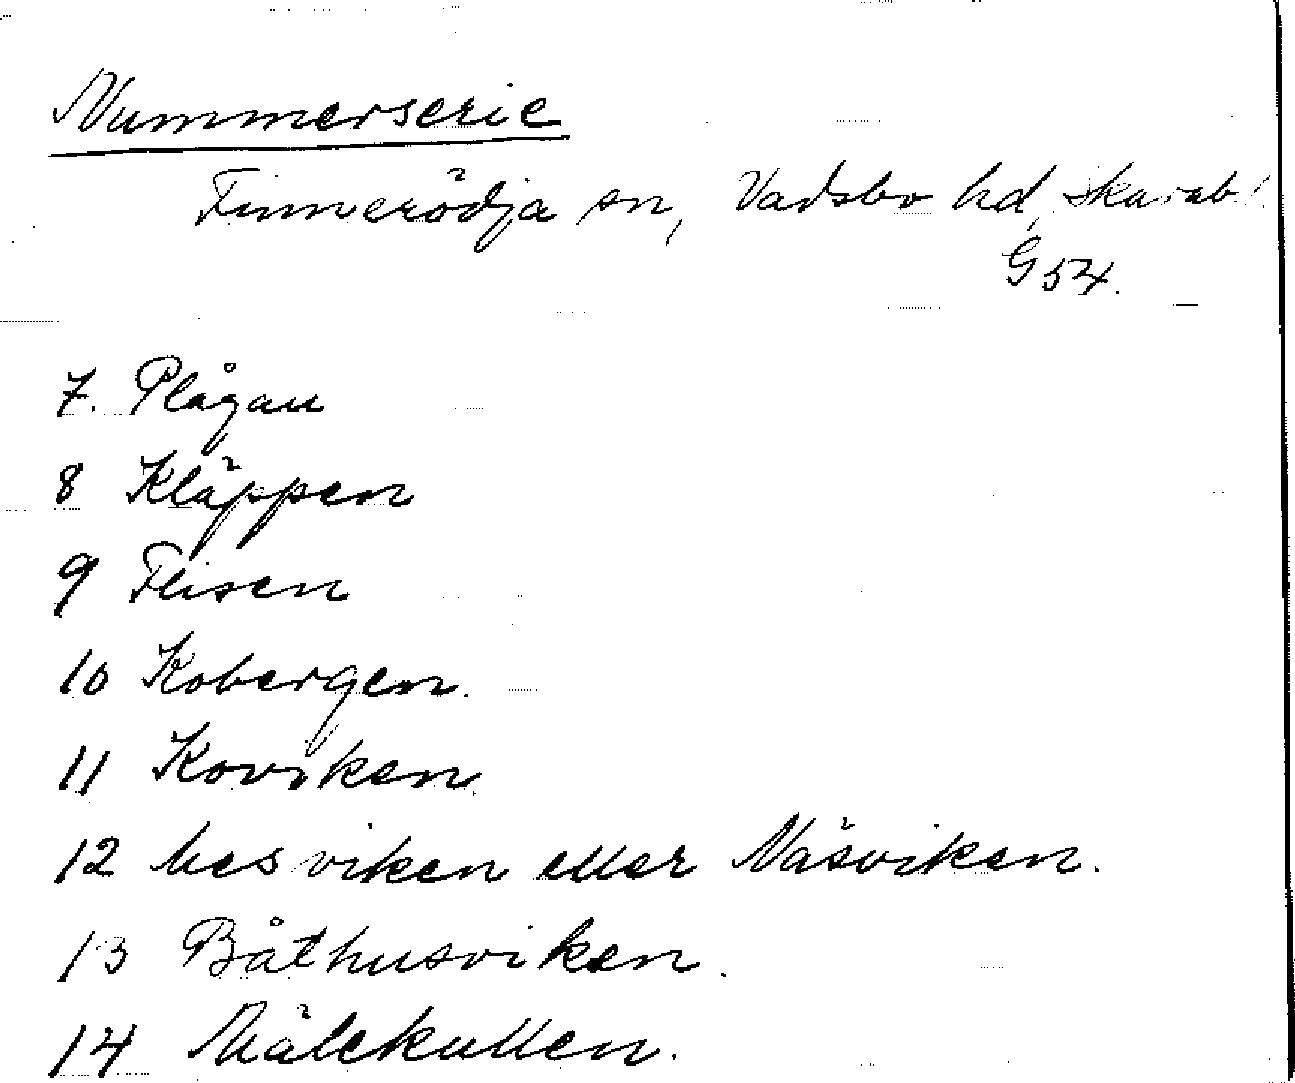 Nummerserie
Finnerödja sn, Vadsbo hd, Skarab.
G 54.
7. Plågan
8 Kläppen
9 Flisen
10 Kobergen.
11 Koviken
12 Nesviken eller Näsviken.
13 Båthusviken.
14 Mälekullen.